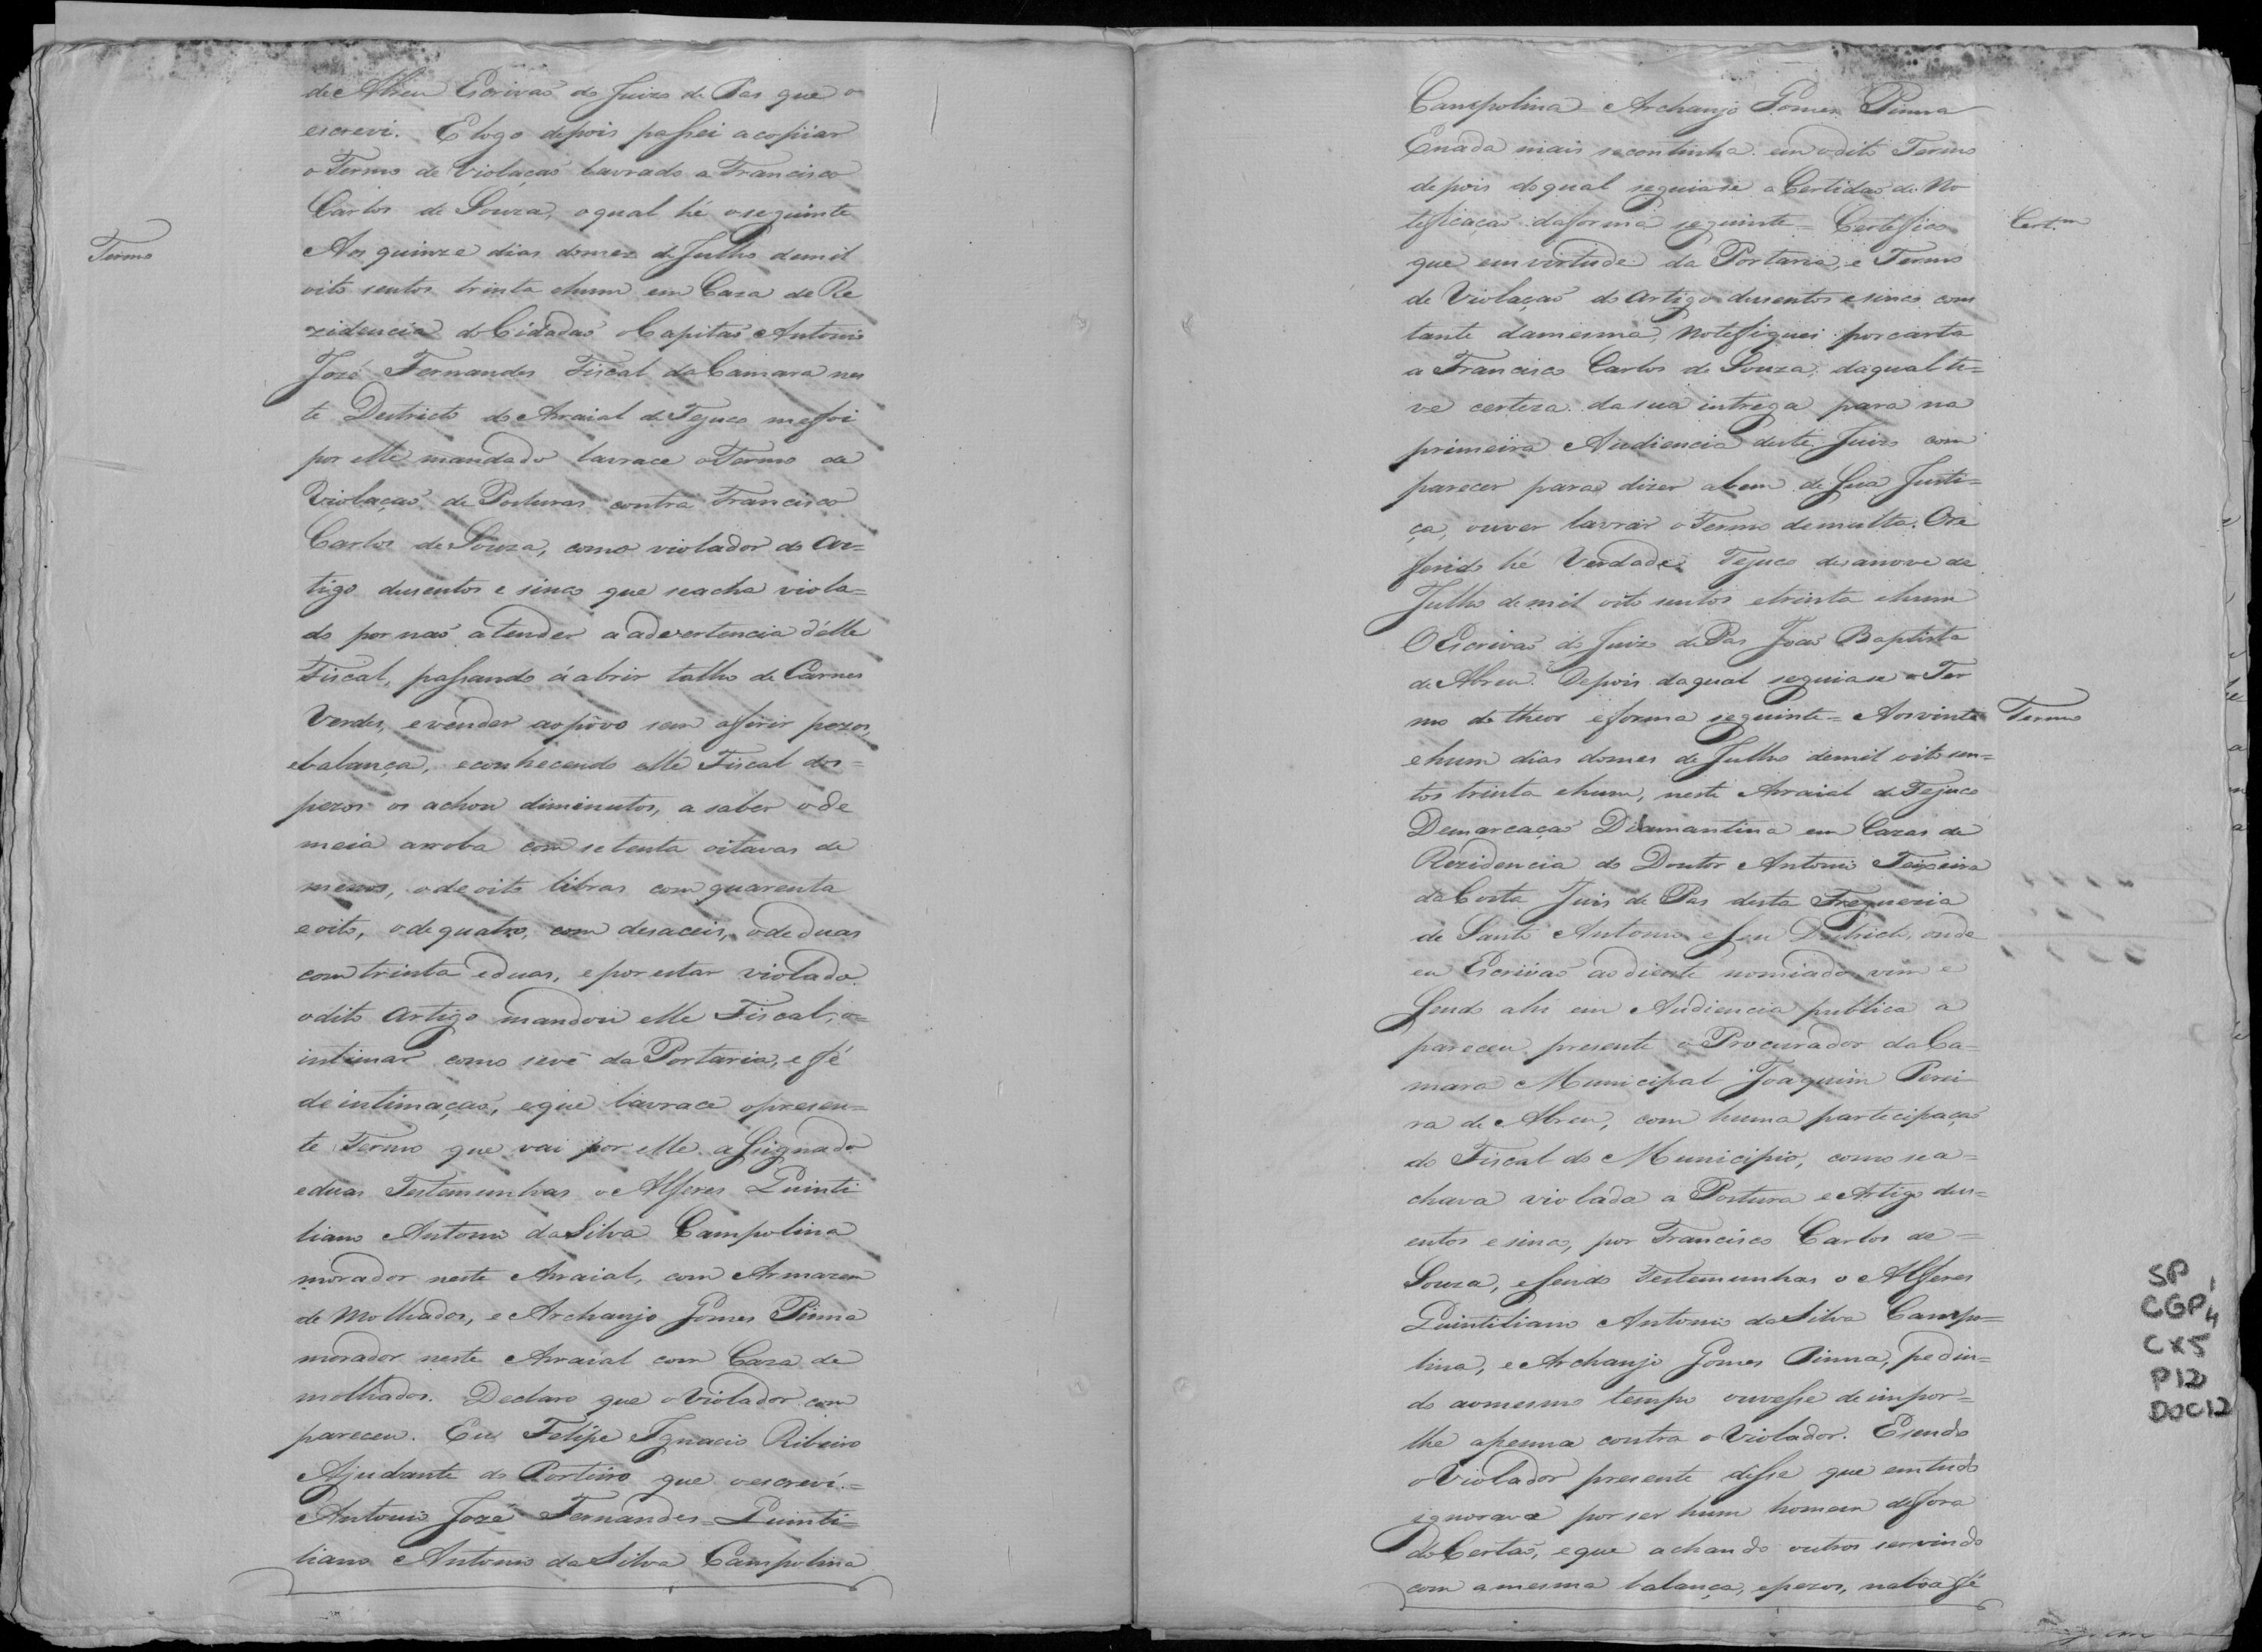 de Abreu Escrivaõ do Juizo de Pas que o
escrevi. E logo depois passei a copiiar
o Termo de Violaçaõ lavrado a Francisco
Carlos de Souza, o qual hé o seguinte
Termo
Aos quinze dias do mez de Julho de mil
oito sentos trinta e hum em Caza de Re
zidencia do Cidadaõ o Capitaõ Antonio
José Fernandes Fiscal da Camara nes
te Destricto do Arraial do Tejuco me foi
por elle mandado lavrace o Termo de
Violaçaõ de Posturas contra Francisco
Carlos de Souza, como violador do Ar=
tigo dusentos e sinco que se acha viola=
do por naõ atender a advertencia d'elle
Fiscal, passando á abrir talho de Carnes
Verdes, e vender ao pôvo sem aferir pezos,
e balança, e conhecendo elle Fiscal dos=
pezos os achou diminutos, a saber o de
meia arroba com setenta oitavas de
menos, o de oito libras com quarenta
e oito, o de quatro, com desaceis, o de duas
com trinta e duas, e por estar violado
o dito Artigo mandou elle Fiscal, o=
intimar como se vê da Portaria, e fé
de intimaçaõ, e que lavrace o presen=
te Termo que vai por elle assignado
e duas Testemunhas o Alferes Quinti
liano Antonio da Silva Campolina
morador neste Arraial, com Armazem
de Molhados, e Archanjo Gomes Pinna
morador neste Arraial com Caza de
molhados. Declaro que o Violador com
pareceu. Eu Felipe Ignacio Ribeiro
Ajudante do Porteiro que o escrevi.=
Antonio José Fernandes = Quinti=
liano Antonio da Silva Campolina
Campolina = Archanjo Gomes Pinna
E nada mais se continha em o dito Termo
depois do qual seguiase a Certidaõ de No
tificaçaõ da forma seguinte = Certefico
Cert.m
que em virtude da Portaria, e Termo
de Violaçaõ do Artigo dusentos e sinco cons
tante da mesma, notefiquei por carta
a Francisco Carlos de Souza, da qual ti=
ve certeza da sua intrega para na
primeira Audiencia deste Juizo com
parecer para dizer a bem de sua Justi=
ça, e uver lavrar o Termo de multa. O re
ferido hé Verdade. Tejuco desanove de
Julho de mil oito sentos e trinta e hum
O Escrivaõ do Juizo de Pas Joaõ Baptista
de Abreu. Depois da qual seguiase o Ter
mo do theor e forma seguinte = Aos vinte
Termo
e hum dias do mes de Julho de mil oito sen=
tos trinta e hum, neste Arraial do Tejuco
Demarcaçaõ Diamantina em Cazas de
Rezidencia do Doutor Antonio Teixeira
da Costa Juis de Pas desta Freguezia
de Santo Antonio e seu Districto, onde
eu Escrivaõ ao diente nomiado, vim e
sendo ahi em Audiencia publica a
pareceu presente o Procurador da Ca=
mara Municipal Joaquim Perei
ra de Abreu, com huma participaçaõ
do Fiscal do Municipio, como se a=
chava violada a Postura e Artigo dus=
entos e sinco, por Francisco Carlos de =
Souza, e sendo Testemunhas o Alferes
Quintiliano Antonio da Silva Campo=
lina, e Archanjo Gomes Pinna, pedin=
do ao mesmo tempo ouvesse de impor=
lhe a penna contra o Violador. E sendo
o Violador presente disse que em tudo
ignorava por ser hum homem de fora
do Certaõ, e que achando outros servindo
com a mesma balança, e pezos, na bôa fé
SP
CGP 4
CX5
P12
DOC12